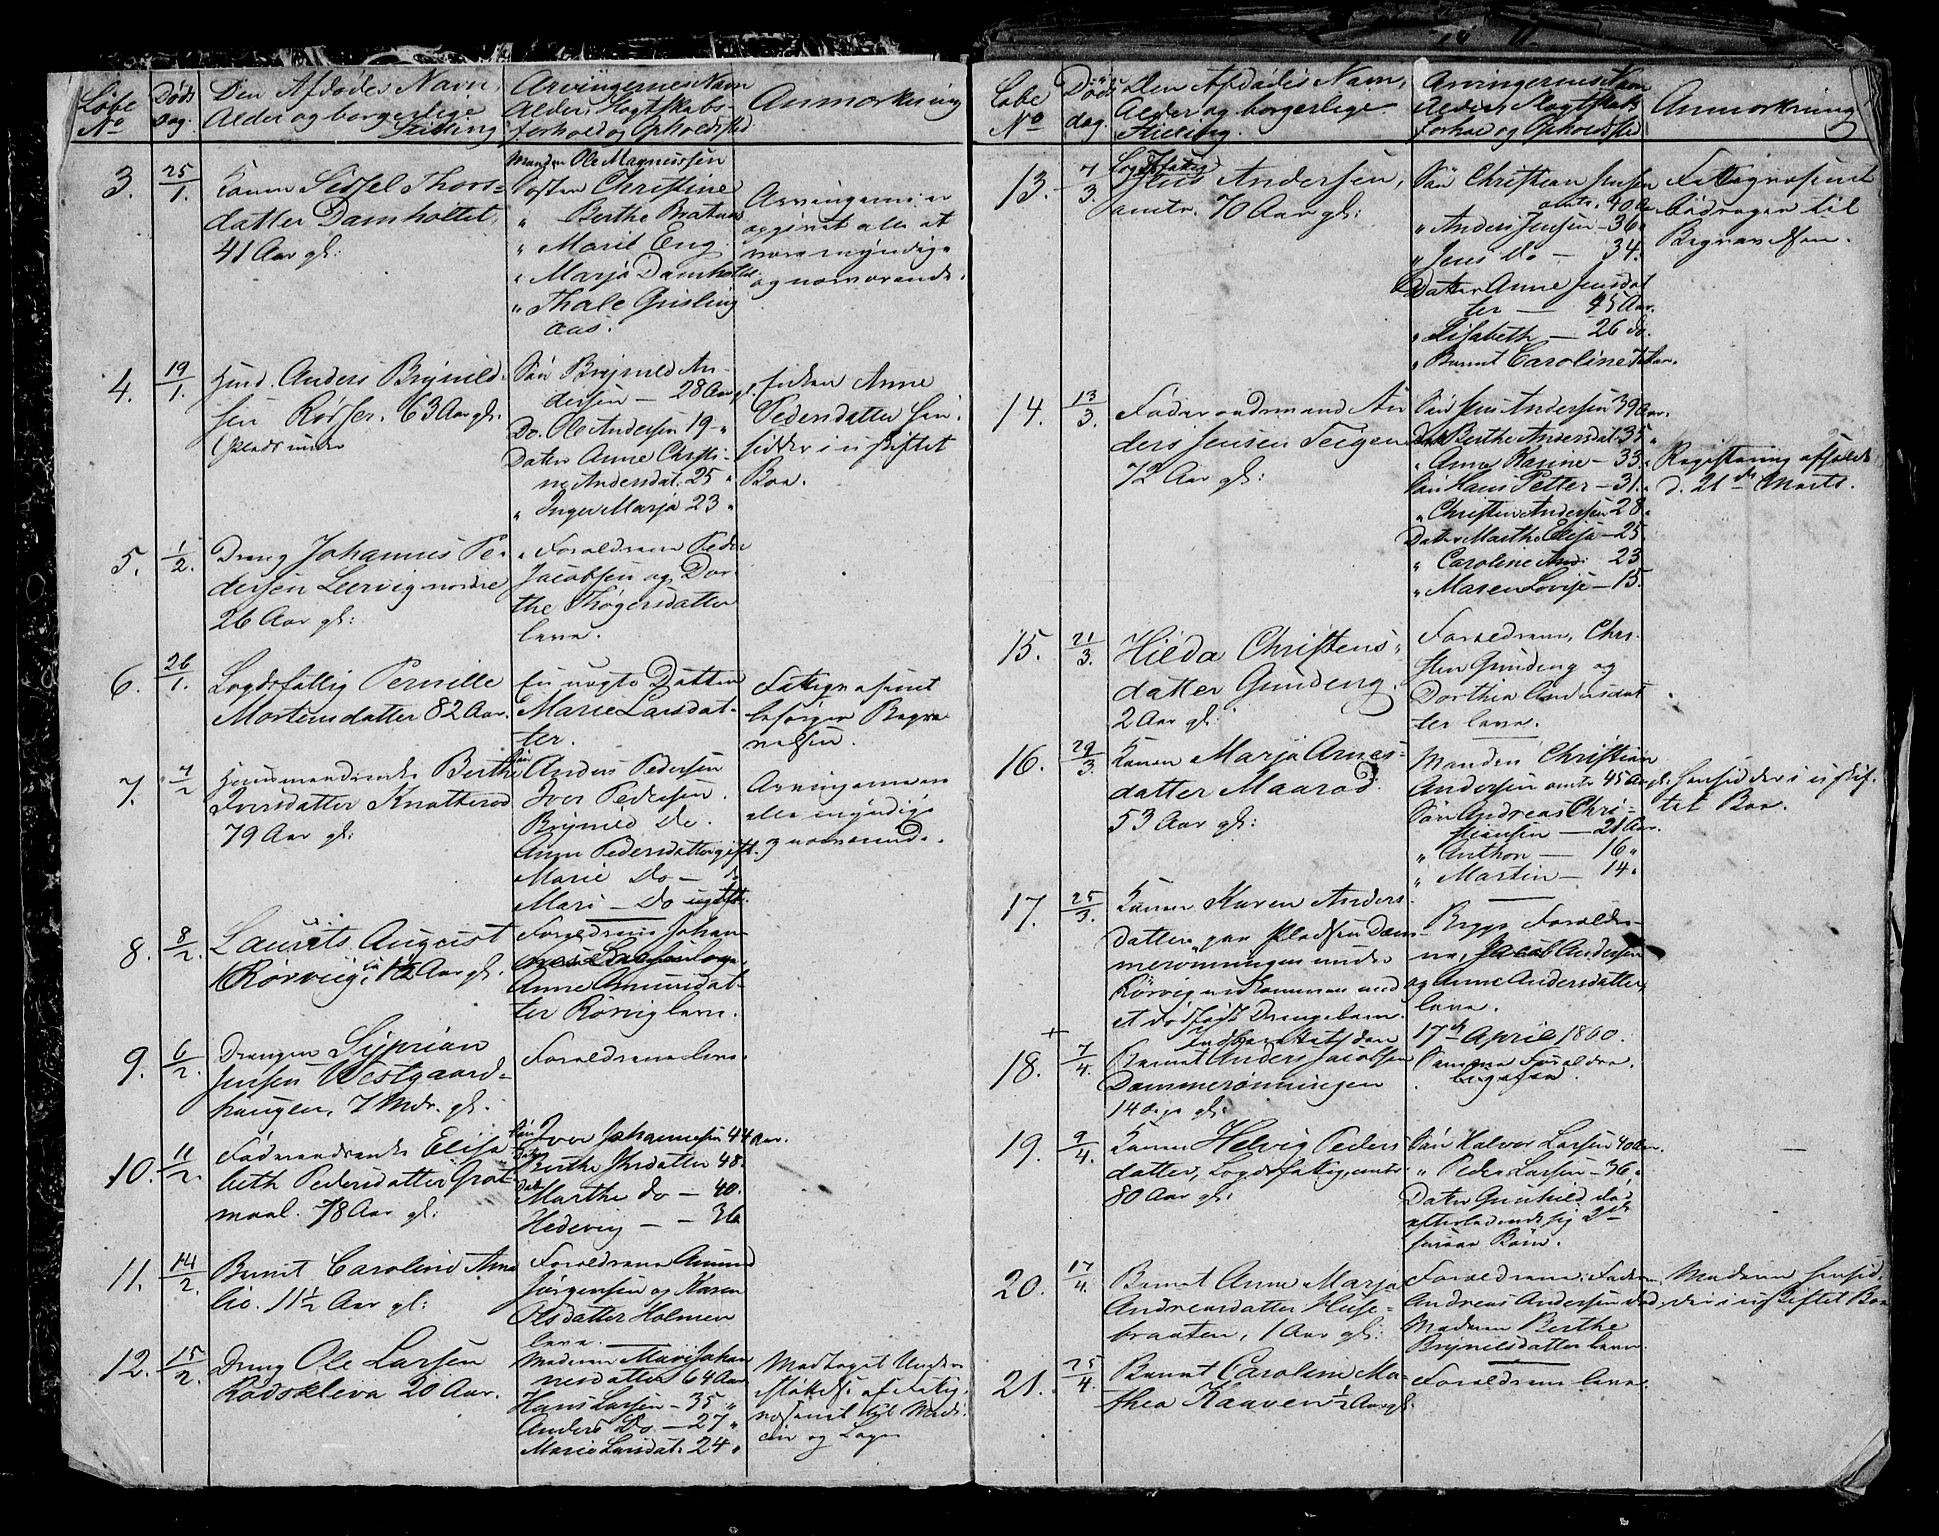 Løbe No
Døds Dag
Den Afdødes Navn,
Alder og borgerlige
Stilling
Arvingernes Navn
Alder, Slægtskabs-
forhold og Opholdsted
Anmærkning
3.
25/1.
Konen Sissel Thors-
datter Damholtet,
41 Aar gl:
Manden Ole Magnussen
Søsteren Christine
" Berthe Braten
" Marie Eng
" Marja Damholtet
" Thale Grisling
aas.
Arvingerne er
opgivet alle at
være myndige
og nærværende.
4.
19/1.
Husmd. Anders Brynild-
sen Røsser. 63 Aar gl.
Plads under
Søn Brynild An-
dersen — 28 Aar gl.
Do. Ole Andersen 19 - "
Datter Anne Christi-
ne Andersdat. 25 "
" Inger Marja 23 "
Enken Anne
Pedersdatter hen-
sidder i uskiftet
Boe.
5.
1/2.
Dreng Johannes Pe-
dersen Leervig nordre
26 Aar gl:
Forældrene Peder
Jacobsen og Dor-
the Thøgersdatter
leve.
6.
26/1.
Lægdsfattig Pernille
Mortensdatter 82 Aar.
En uægte Datter
Marie Larsdat-
ter.
Fattigvæsenet
besørger Begra-
velsen.
7.
4/2
Huusmandsenke Berthe
Iversdatter Knatterød
79 Aar gl:
Søn Anders Pedersen
Iver Pedersen.
Brynild Do.
Anne Pedersdatter gift.
Marie Do — "
Mari — Do ugift.
Arvingerne er
alle myndige
og nærværende.
8.
8/2.
Laurits August
Rørviig, 1½ Aar gl.
Forældrene Johan-
nes Larsen og
Anne Amundsdat-
ter Rørvig leve.
9.
6/2.
Drengen Syprian
Jensen Westgaard-
haugen, 7 Mdr. gl.
Forældrene leve.
10.
11/2.
Føderaadsenke Elisa
beth Pedersdatter Graat-
maal. 78 Aar gl:
Søn Iver Johannesen 44 Aar.
Datter Berthe Johsdatter 48.
Datter Marthe do — 40.
Hedevig — - 36
11.
14/2.
Barnet Caroline Ama
lie. 11½ Aar gl:
Forældrene Amund
Jørgensen og Karen
Olsdatter Holmen
leve.
12.
15/2.
Dreng Ole Larsen
Rødskleva 20 Aar.
Moderen Mari Johan
nesdatter 64 Aar
Hans Larsen — 35 "
Anders Do. — 27 "
Marie Larsdat. 24 "
Modtaget Under-
støttelse af Fattig-
væsenet til Medi-
cin og Læge
Løbe No
Døds dag
Den Afdødes Navn,
Alder og borgerlige
Stilling.
Arvingernes Navn
Alder, Slægtskabs
forhold og Opholdsted
Anmærkning
13.
7/3.
Lægdsfattig
Jens Andersen,
omtr. 70 Aar gl:
Søn Christian Jensen
omtr. 40 Aar
" Anders Jensen — 36 "
" Jens Do — 34.
Datter Anne Jensdat
ter — 45 Aar.
" Elisabeth — 26 do.
" Barnet Caroline
Fattigvæsenet
bidrager til
Begravelsen.
14.
13/3.
Føderaadsmand An
ders Jensen Teigen
72 Aar gl:
Søn Jens Andersen 39 Aar.
Datt Berthe Andersdat. 35 "
" Anne Karine — 33 "
Søn Hans Petter — 31. "
" Christen Andersen 28 "
Datter Marthe Elisa — 25.
" Caroline And: 23
" Maren Lovise — 15.
Registrering afholdt
d. 21de Marts.
15.
21/3.
Hilda Christens-
datter Gundeng.
2 Aar gl:
Forældrene, Chri-
sten Gundeng og
Dorthea Andersdat
ter leve.
16.
29/3.
Konen Marja Arnes-
datter Maarød.
53 Aar gl:
Manden Christian
Andersen omtr 45 Aar gl.
Søn Andreas Chri-
stiansen — 21 Aar.
" Anthon — 16 "
" Martin — 14 "
Hensidder i uskif-
tet Boe.
17.
25/3.
Konen Karen Anders-
datter paa Pladsen Dam-
merønningen under
Rørvig nedkommen med
et dødfødt Drengebarn.
Begge Foræld-
re, Jacob Andersen
og Anne Andersdatter,
leve.
Indberettet den
17de April 1860.
+
18.
7/4.
Barnet Anders Jacobsen
Dammerønningen
14 Dage gl:
Samme Forældre.
19.
9/4.
Konen Helvig Peders
datter, Lægdsfattig, omtr
80 Aar gl:
Søn Halvor Larsen 40 Aar.
" Peder Larsen — 36 "
Datter Gunhild død
efterladende sig 2de
Børn.
20.
17/4.
Barnet Anne Marja
Andreasdatter Huse-
braaten, 1 Aar gl:
Forældrene: Faderen
Andreas Andersen død,
Moderen Berthe
Brynildsdatter leve.
Moderen hensid-
der i uskiftet Boe
21.
25/4.
Barnet Caroline Ma-
thea Kaaven ½ Aar gl.
Forældrene leve.